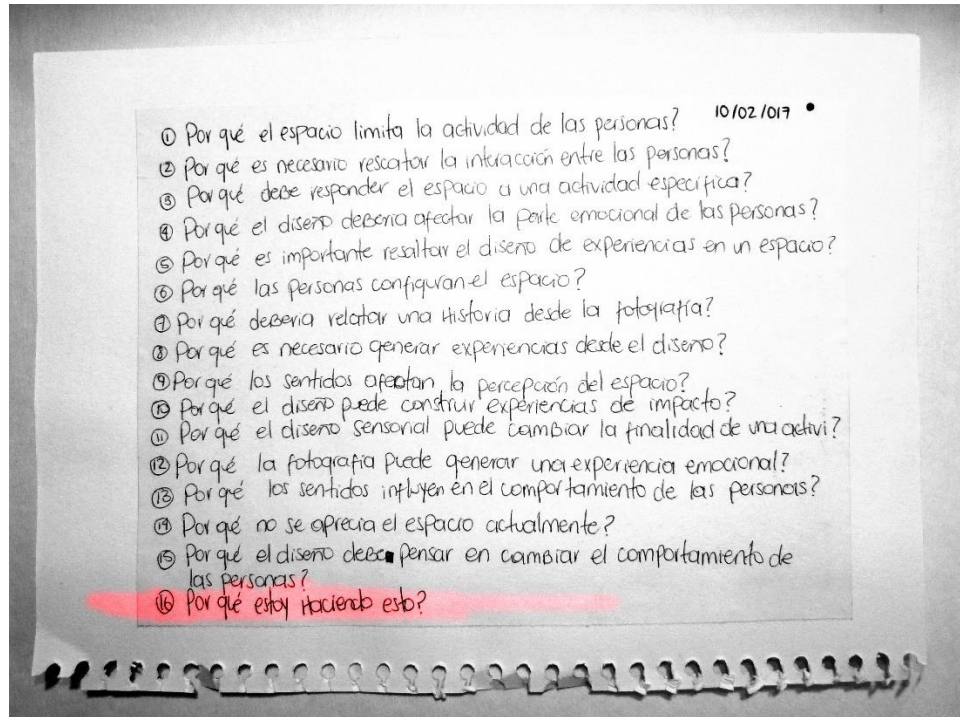 10/02/017
① Por qué el espacio limita la actividad de las personas?
② Por qué es necesario rescatar la interacción entre las personas?
③ Por qué debe responder el espacio a una actividad específica?
④ Por qué el diseño deberia afectar la parte emocional de las personas?
⑤ Por qué es importante resaltar el diseño de experiencias en un espacio?
⑥ Por qué las personas configuran el espacio?
⑦ Por qué deberia relatar una Historia desde la fotografía?
⑧ Por qué es necesario generar experiencias desde el diseño?
⑨ Por qué los sentidos afectan la percepción del espacio?
⑩ Por qué el diseño puede construir experiencias de impacto?
⑪ Por qué el diseño sensorial puede cambiar la finalidad de una activi?
⑫ Por qué la fotografía puede generar una experiencia emocional?
⑬ Por qué los sentidos influyen en el comportamiento de las personas?
⑭ Por qué no se aprecia el espacio actualmente?
⑮ Por qué el diseño debe pensar en cambiar el comportamiento de
las personas?
⑯ Por qué estoy Haciendo esto?